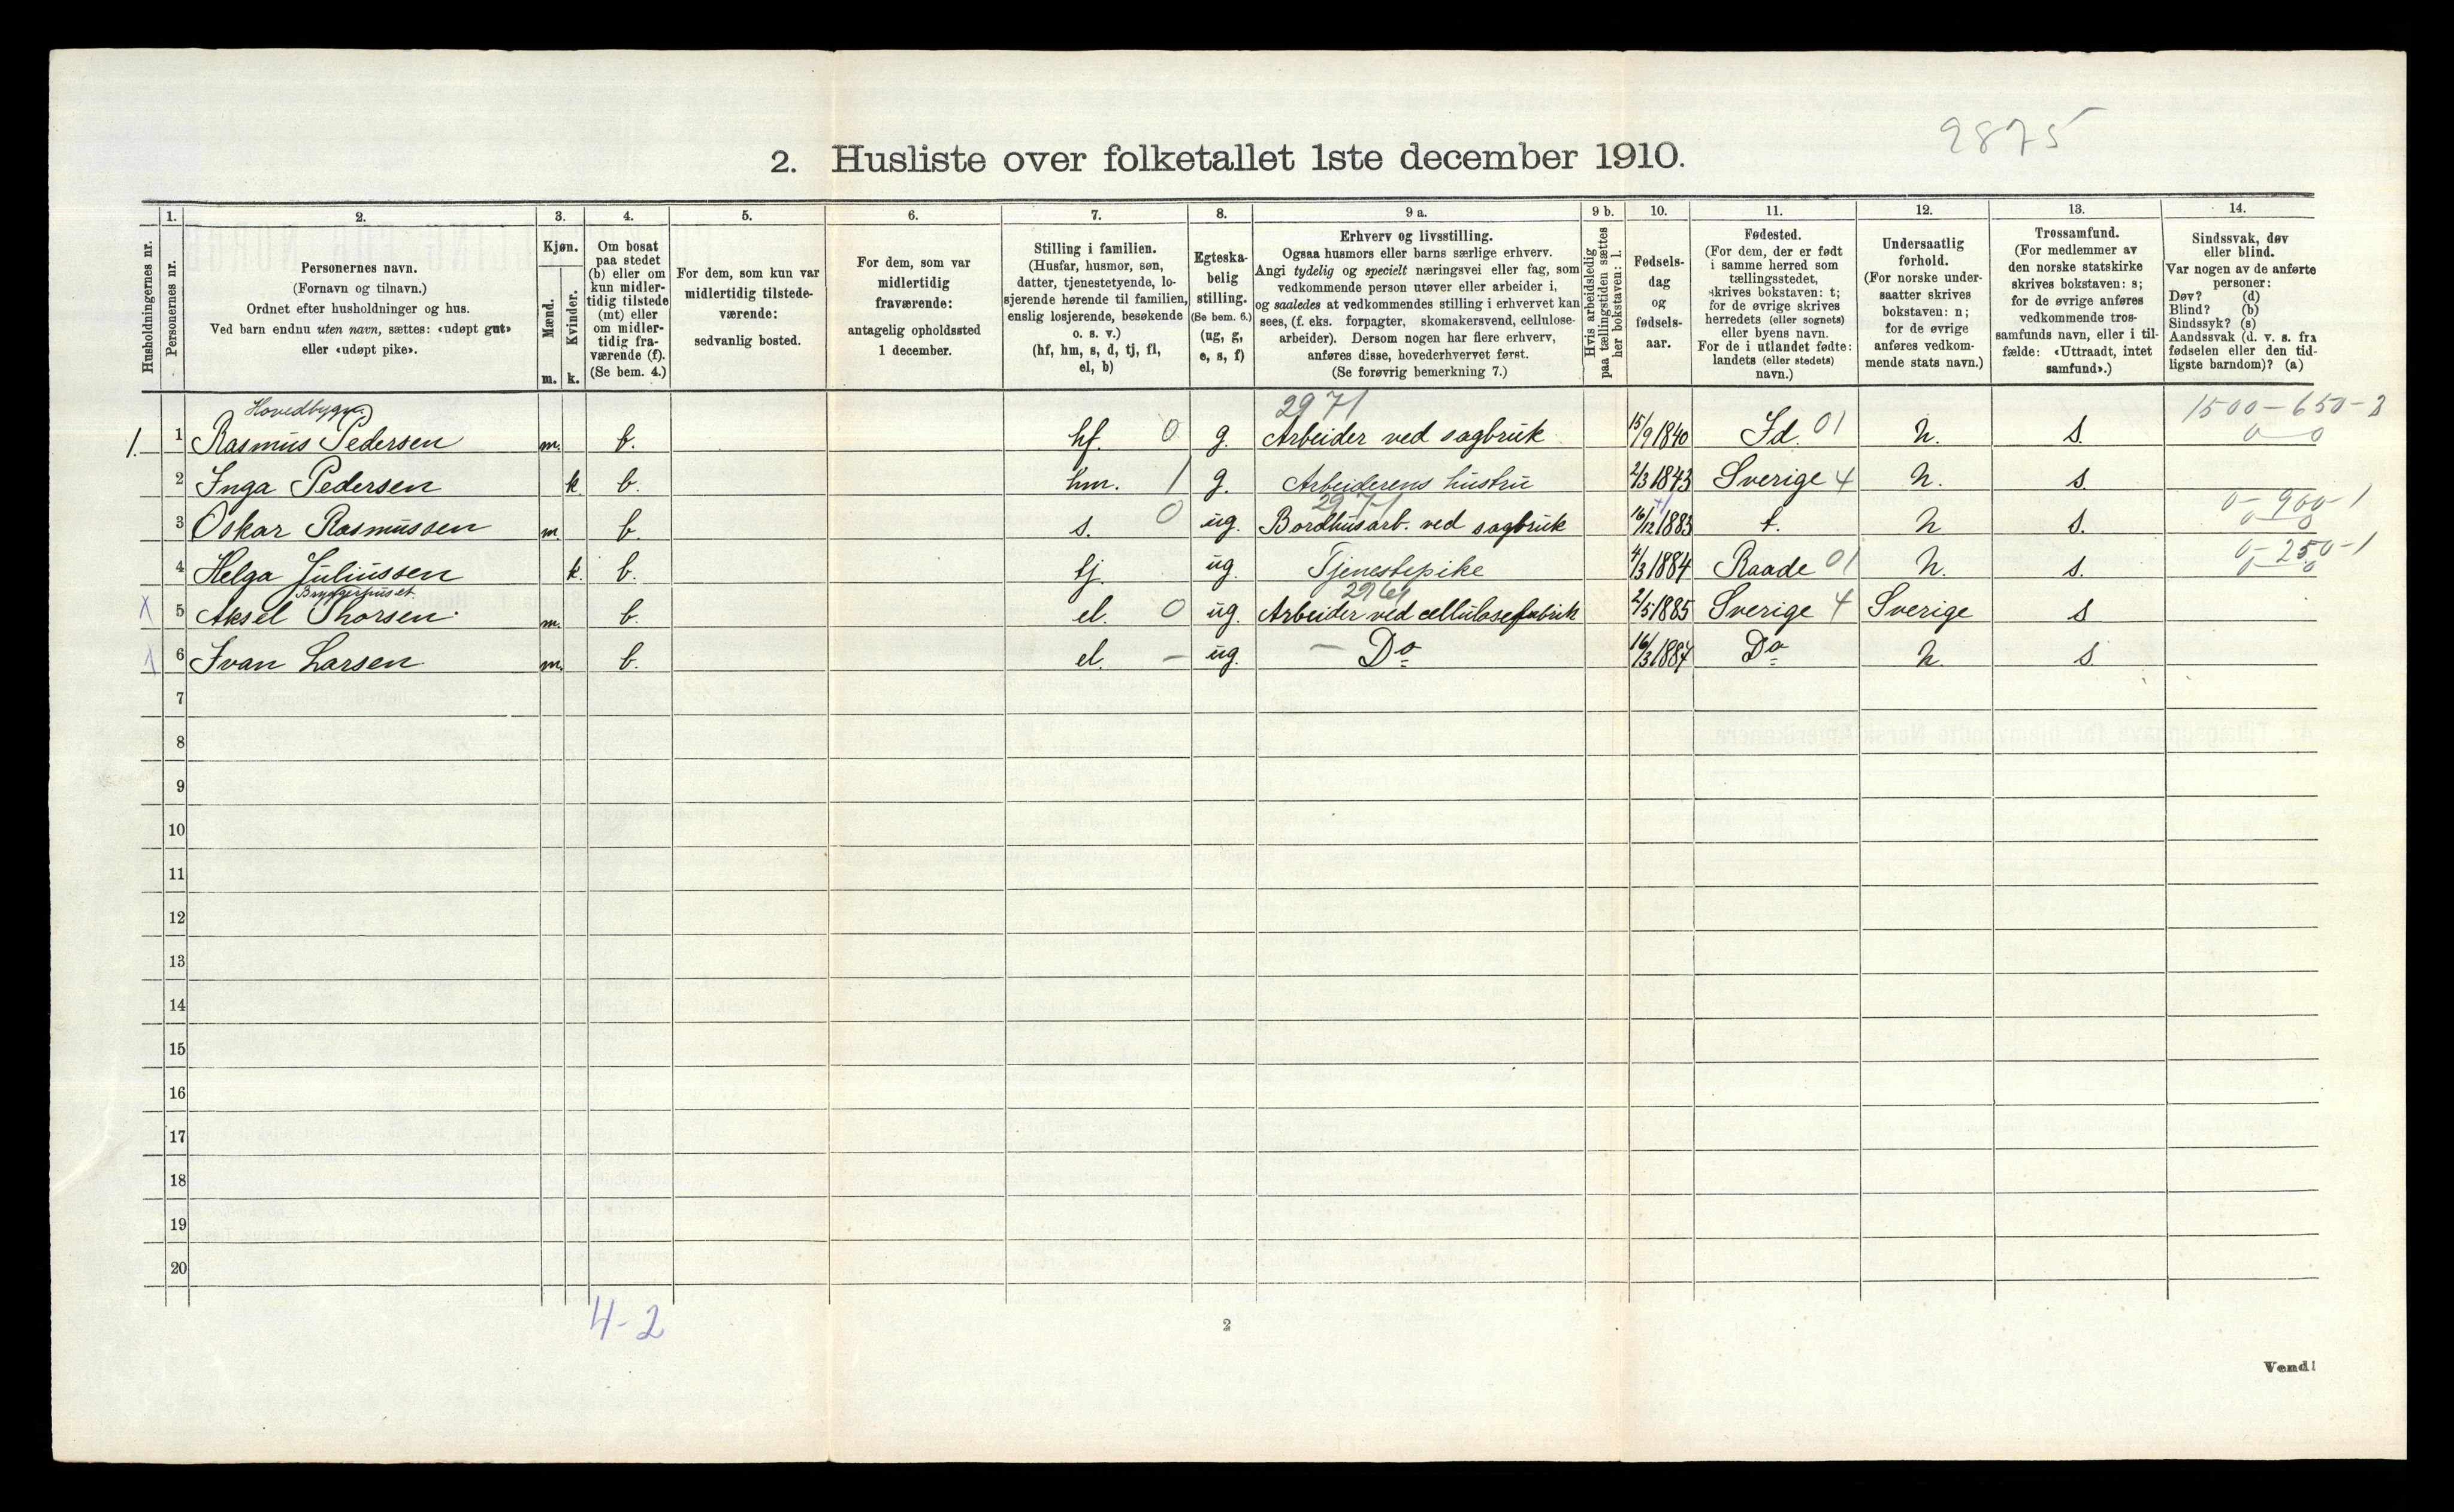 2875
2. Husliste over folketallet 1ste december 1910.
Husholdningernes nr.
1.
Personernes nr.
2.
Personernes navn.
(Fornavn og tilnavn.)
Ordnet efter husholdninger og hus.
Ved barn endnu uten navn, sættes: «udøpt gut»
eller «udøpt pike».
3.
Kjøn.
Mænd.
Kvinder.
m. k.
4.
Om bosat
paa stedet
(b) eller om
kun midler-
tidig tilstede
(mt) eller
om midler-
tidig fra-
værende (f).
(Se bem. 4.)
5.
For dem, som kun var
midlertidig tilstede-
værende:
sedvanlig bosted.
6.
For dem, som var
midlertidig
fraværende:
antagelig opholdssted
1 december.
7.
Stilling i familien.
(Husfar, husmor, søn,
datter, tjenestetyende, lo-
sjerende hørende til familien,
enslig losjerende, besøkende
o. s. v.)
(hf, hm, s, d, tj, fl,
el, b)
8.
Egteska-
belig
stilling.
(Se bem. 6.)
(ug, g,
e, s, f)
9 a.
Erhverv og livsstilling.
Ogsaa husmors eller barns særlige erhverv.
Angi tydelig og specielt næringsvei eller fag, som
vedkommende person utøver eller arbeider i,
og saaledes at vedkommendes stilling i erhvervet kan
sees, (f. eks. forpagter, skomakersvend, cellulose-
arbeider). Dersom nogen har flere erhverv,
anføres disse, hovederhvervet først.
(Se forøvrig bemerkning 7.)
9 b.
Hvis arbeidsledig
paa tællingstiden sættes
her bokstaven: l.
10.
Fødsels-
dag
og
fødsels-
aar.
11.
Fødested.
(For dem, der er født
i samme herred som
tællingsstedet,
skrives bokstaven: t;
for de øvrige skrives
herredets (eller sognets)
eller byens navn.
For de i utlandet fødte:
landets (eller stedets)
navn.)
12.
Undersaatlig
forhold.
(For norske under-
saatter skrives
bokstaven: n;
for de øvrige
anføres vedkom-
mende stats navn.)
13.
Trossamfund.
(For medlemmer av
den norske statskirke
skrives bokstaven: s;
for de øvrige anføres
vedkommende tros-
samfunds navn, eller i til-
fælde: «Uttraadt, intet
samfund».)
14.
Sindssvak, døv
eller blind.
Var nogen av de anførte
personer:
Døv? (d)
Blind? (b)
Sindssyk? (s)
Aandssvak (d. v. s. fra
fødselen eller den tid-
ligste barndom)? (a)
Hovedbygn. 2971 1500-650-3
1. 1 Rasmus Pedersen m. b. hf. 0 g. Arbeider ved sagbruk 15/9 1840 Id. 01 n. s. 0 0
2 Inga Pedersen k b. hm. 1 g. Arbeiderens hustru 2/3 1843 Sverige 4 n. s.
2971 0-900-1
3 Oskar Rasmussen m. b. s. 0 ug. Bordhusarb. ved sagbruk 16/12 1883 t. n s. 0 0
0-250-1
4 Helga Juliussen k. b. tj. ug. Tjenestepike 4/3 1884 Raade 01 n. s. 0 0
Bryggerhuset 2961
X 5 Aksel Thorsen m. b. el. 0 ug. Arbeider ved cellulosefabrik 2/5 1885 Sverige 4 Sverige s
6 Ivan Larsen m. b. el. - ug. - Do 16/3 1887 Do n. s.
7
8
9
10
11
12
13
14
15
16
17
18
19
20
4-2
2
Vend!